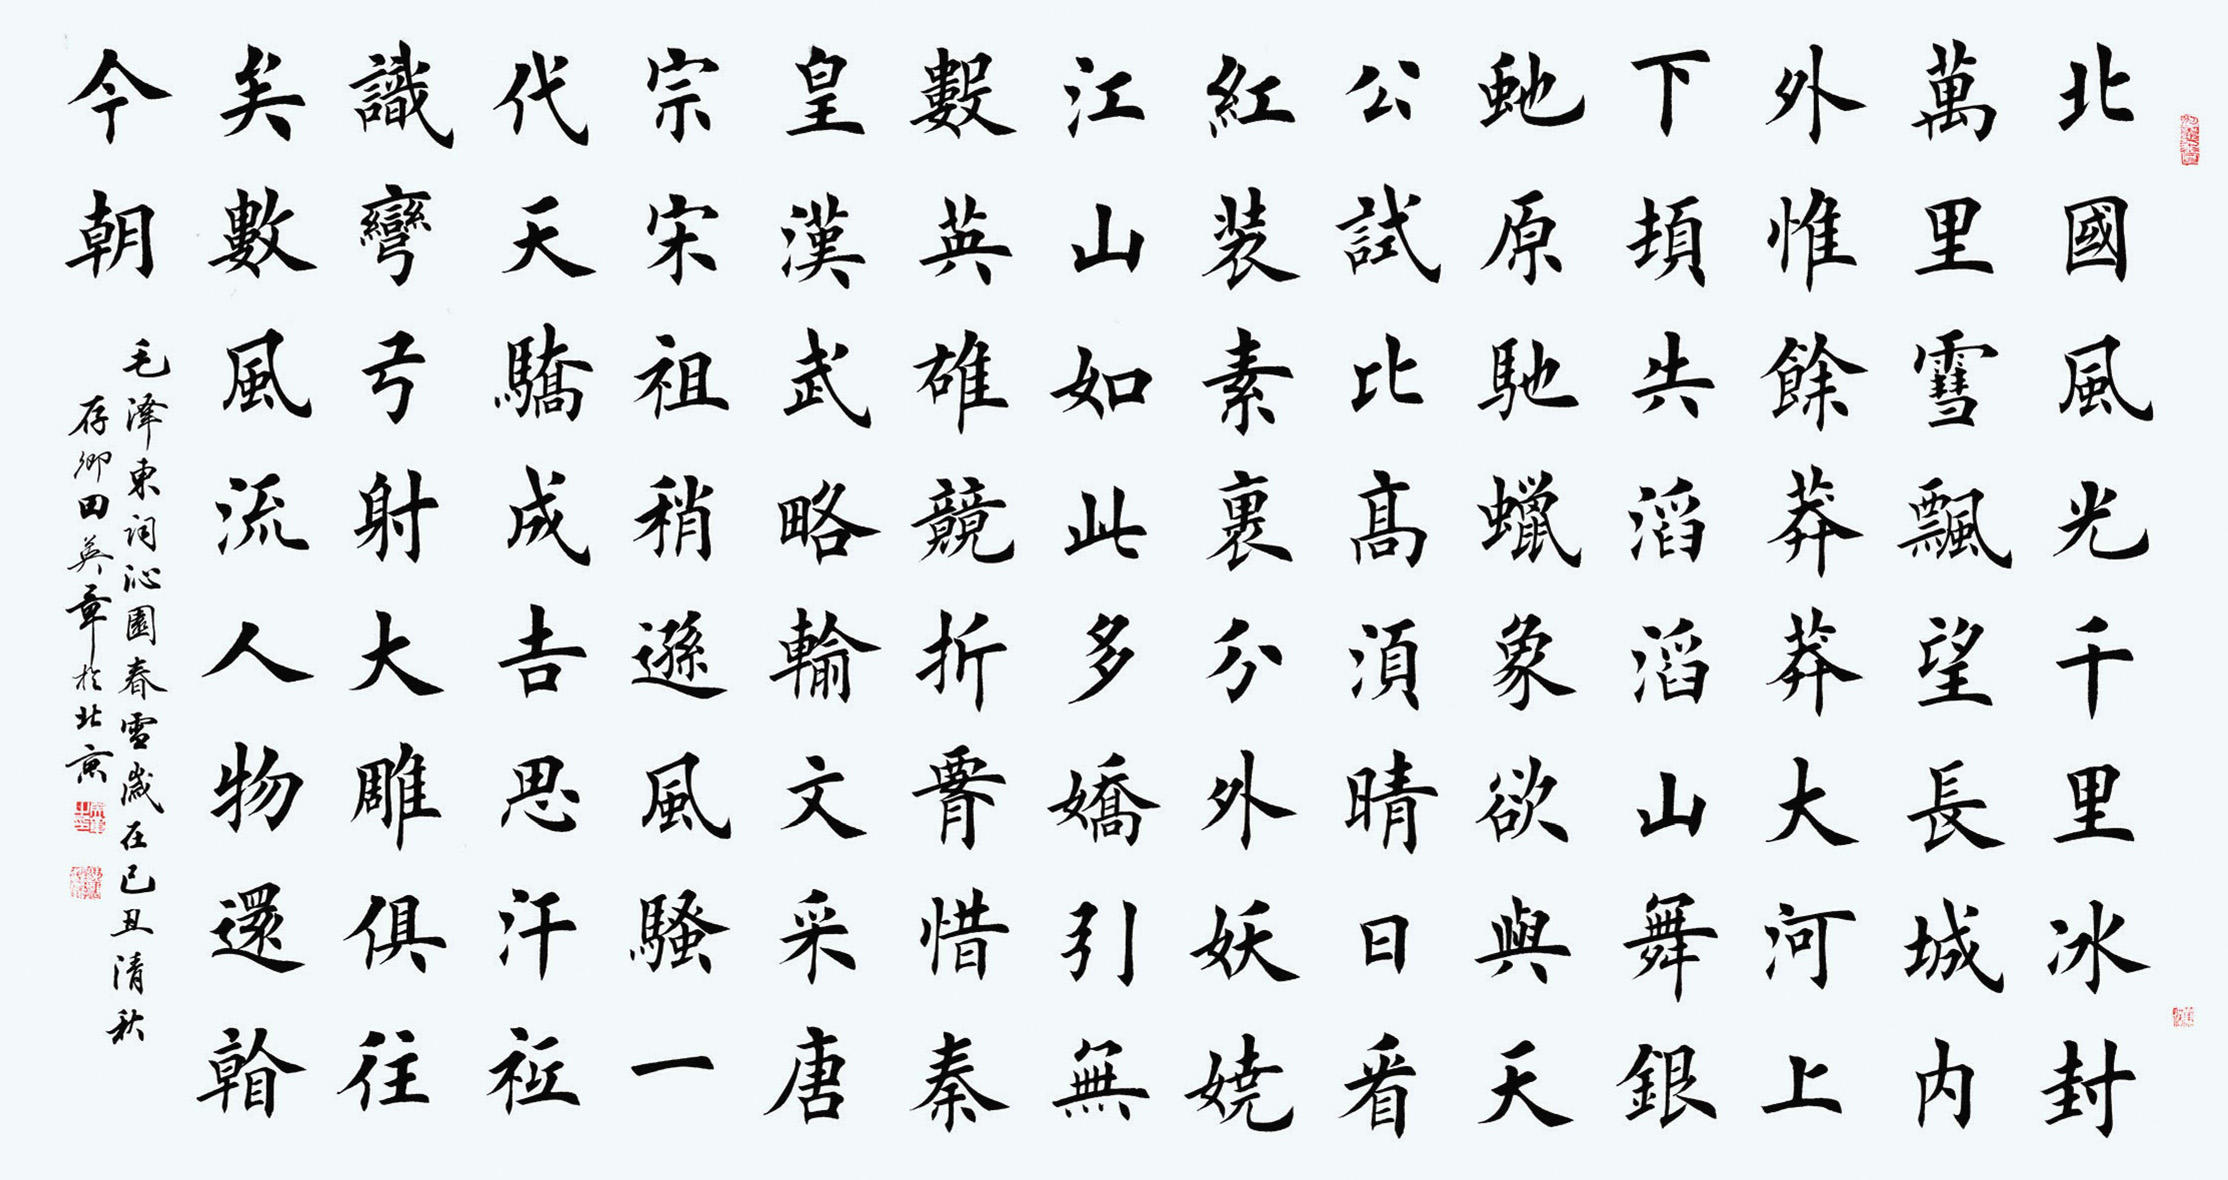 北國風光千里冰封
萬里雪飄望長城内
外惟餘莽莽大河上
下頓失滔滔山舞銀
虵原馳蠟象欲與天
公試比髙湏晴日看
紅装素裹分外妖嬈
江山如此多嬌引無
數英雄競折腰惜秦
皇漢武略輸文采唐
宗宋祖稍遜風騷一
代天驕成吉思汗祗
識彎弓射大雕俱往
矣數風流人物還看
今朝
毛澤東詞沁園春雪歲在己丑清秋
存卿田英章於北京